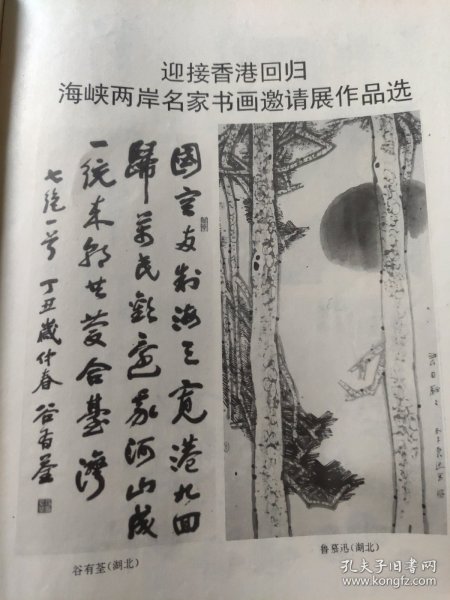 迎接香港回归
海峡两岸名家书画邀请展作品选
國 制海天寬港九回
歸萬民歡還我河山成
一統來朝共慶合臺灣
七绝一首 丁丑歲仲春 谷有荃
谷有荃(湖北)
鲁慕迅(湖北)
孔夫子旧书网
www.kongfz.com